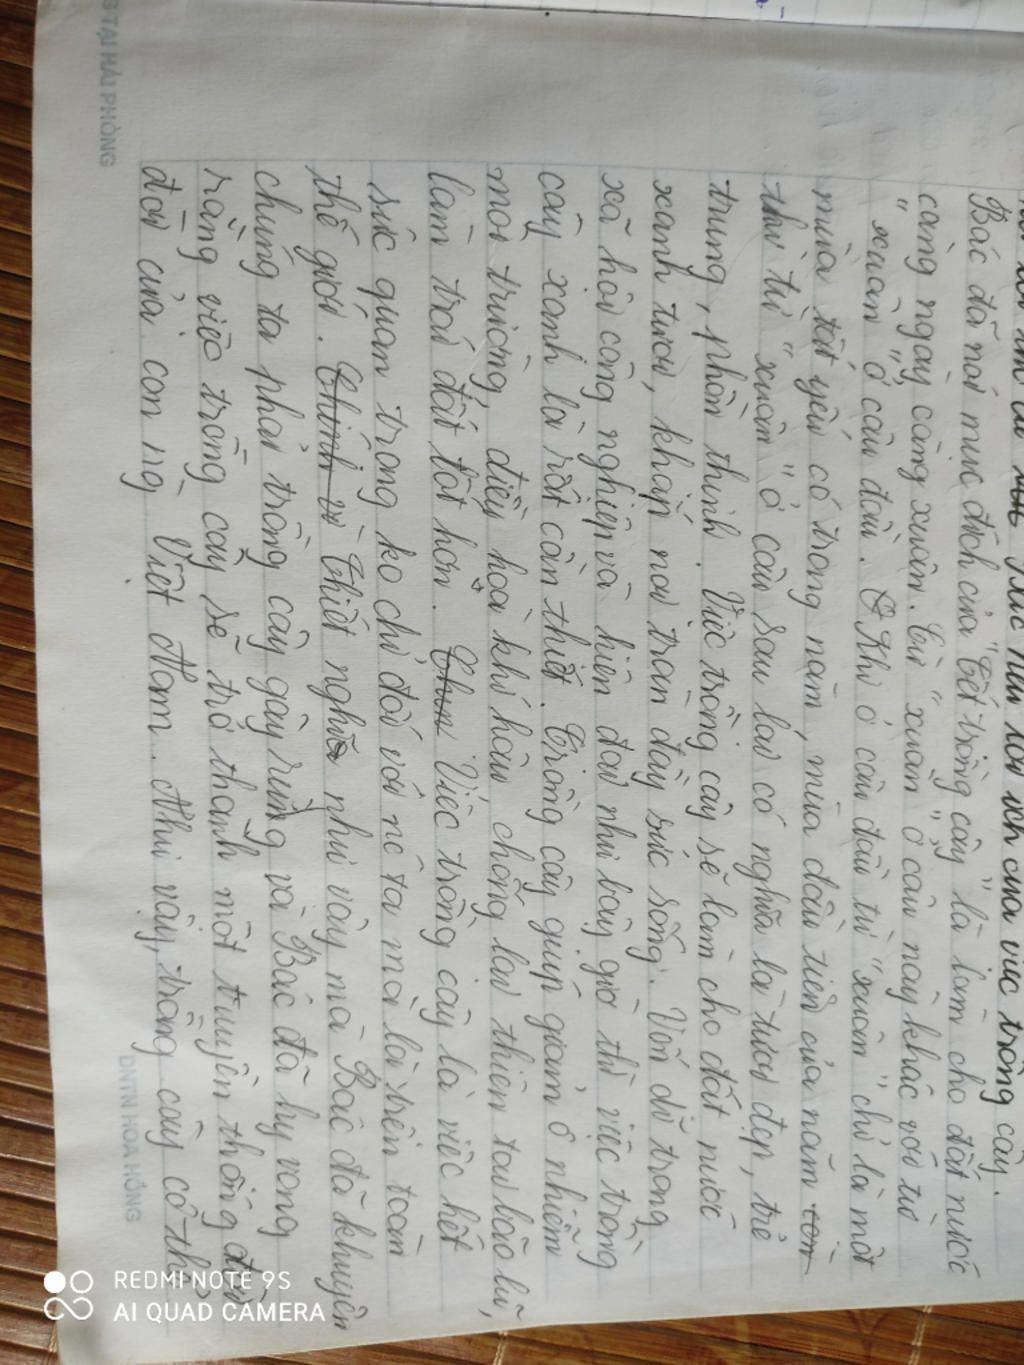 ích của việc trồng cây.
Bác đã nói mục đích của "Tết trồng cây" là làm cho đất nước
càng ngày càng xuân. Từ "xuân" ở câu này khác với từ
"xuân" ở câu đầu. Khi ở câu đầu từ "xuân" chỉ là một
mùa tất yếu có trong năm, mùa đầu tiên của năm còn
thì từ "xuân" ở câu sau lại có nghĩa là tươi đẹp, trẻ
trung, phồn thịnh. Việc trồng cây sẽ làm cho đất nước
xanh tươi, khắp nơi tràn đầy sức sống. Vốn dĩ trong
xã hội công nghiệp và hiện đại như bây giờ thì việc trồng
cây xanh là rất cần thiết. Trồng cây giúp giảm ô nhiễm
môi trường, điều hoà khí hậu chống lại thiên tai bão lũ,
làm trái đất tốt hơn. Việc trồng cây là việc hết
sức quan trọng ko chỉ đối với nc ta mà là trên toàn
thế giới. Thiết nghĩ như vậy mà Bác đã khuyên
chúng ta phải trồng cây gây rừng và Bác đã hy vọng
rằng việc trồng cây sẽ trở thành một truyền thống đời
đời của con ng Việt Nam. Như vậy, trồng cây có thể
TẠI HẢI PHÒNG
DNTN HOA HỒNG
REDMI NOTE 9S
AI QUAD CAMERA